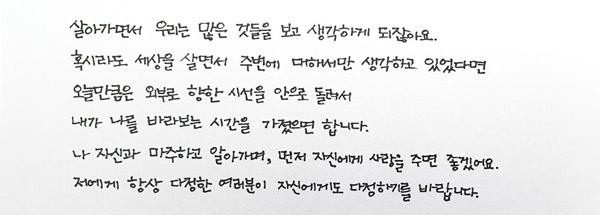 살아가면서 우리는 많은 것들을 보고 생각하게 되잖아요.
혹시라도 세상을 살면서 주변에 대해서만 생각하고 있었다면
오늘만큼은 외부로 향한 시선을 안으로 돌려서
내가 나를 바라보는 시간을 가졌으면 합니다.
나 자신과 마주하고 알아가며, 먼저 자신에게 사랑을 주면 좋겠어요.
저에게 항상 다정한 여러분이 자신에게도 다정하기를 바랍니다.